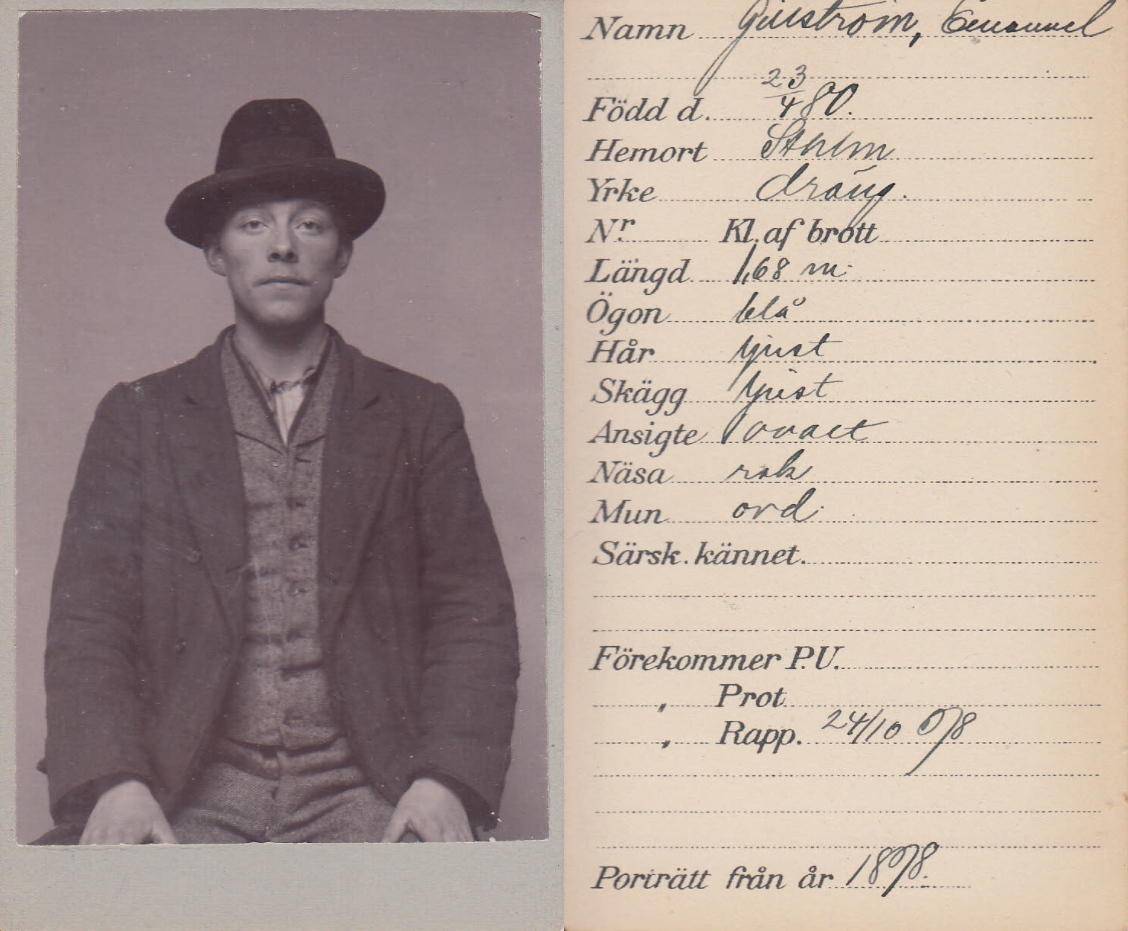 Namn Gillström, Emanuel
Född d. 23/4 80.
Hemort Sthlm
Yrke dräng.
Nr. Kl. af brott
Längd 1,68 m.
Ögon blå
Hår ljust
Skägg ljust
Ansigte ovalt
Näsa rak
Mun ord.
Särsk. kännet.
Förekommer P.U.
„ Prot
„ Rapp. 24/10 98
Porträtt från år 1898.